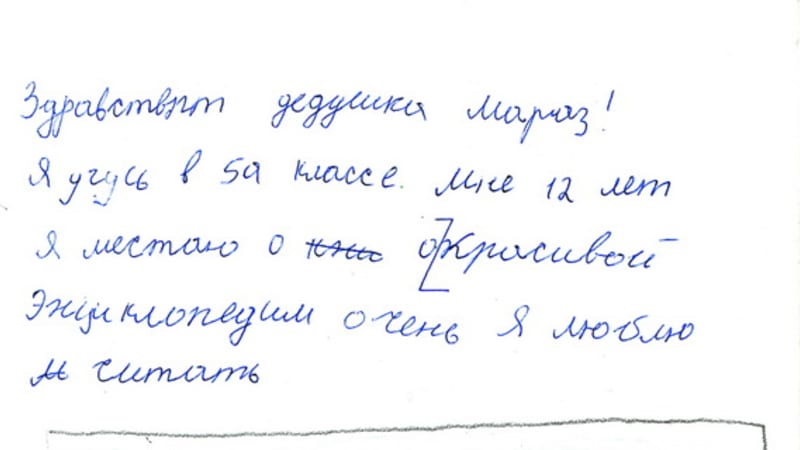 Здравствят дедушка Мараз!
Я учусь в 5а классе. Мне 12 лет
я местаю о о красивой
Энциклопедии очень я люблю
читать